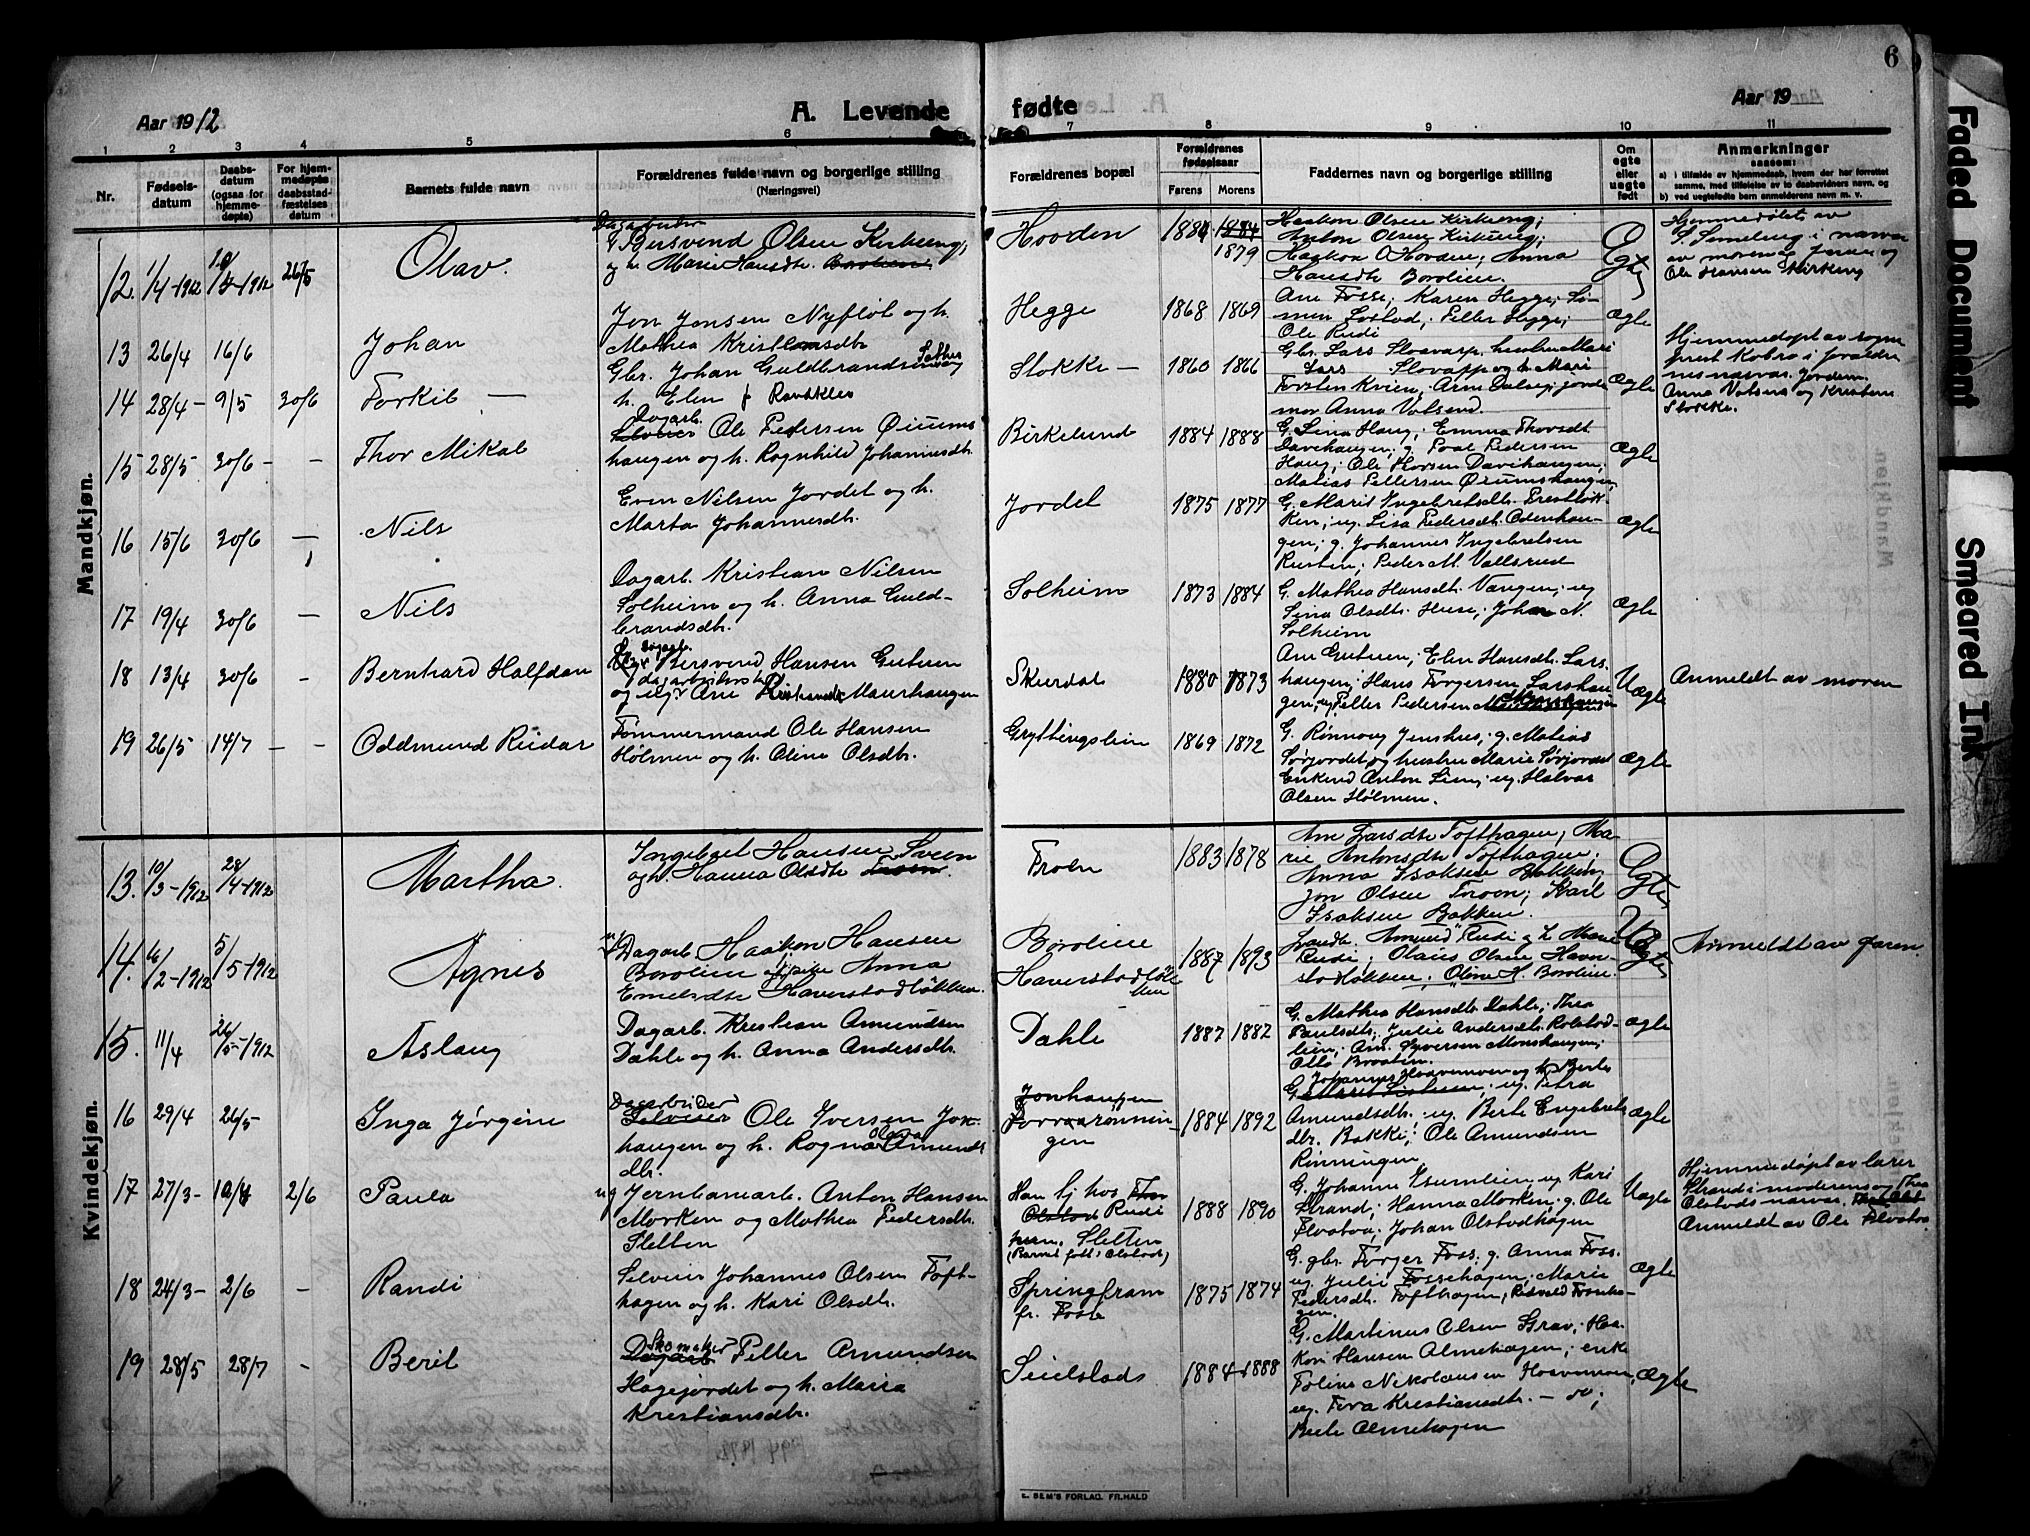 6
Aar 1912
A. Levende fødte
Aar 19
1 2 3 4 5 6 7 8 9 10 11
Nr.
Fødsels-
datum
Daabs-
datum
(ogsaa for
hjemme-
døpte)
For hjem-
medøpte
daabsstad-
fæstelses
datum
Barnets fulde navn
Forældrenes fulde navn og borgerlige stilling
(Næringsvei)
Forældrenes bopæl
Forældrenes
fødselsaar
Farens Morens
Faddernes navn og borgerlige stilling
Om
egte
eller
uegte
født
Anmerkninger
saasom:
a) i tilfælde av hjemmedaab, hvem der har forrettet
samme, med tilføielse av to daabsvidners navn, og
b) ved uegtefødte barn anmelderens navn m. v.
Mandkjøn.
12. 1/4-1912 26/5 Olav.
Dagarbeider
Bersvend Olsen Kirkeeng,
og h. Marie Hansdtr. Boolien
Hooden 1884 1884
1879
Haakon Olsen Kirkeeng;
Anton Olsen Kirkeeng;
Haakon O. Hooden; Anna
Hansdtr Boolien.
Egte
Hjemmedøbt av
av morens faren og
Ole Hansen Kirkeng
13 26/4 16/6 Johan
Jon Jonsen Nyfløt og h.
Mathea Kristiansdtr
Hegge 1868 1869
Ane Fosse; Karen Hegge; Si-
men Lostad; Petter Hegge;
Ole Rudi
Ægte
14 28/4 - 9/5 30/6 Torkil
Gbr. Johan Guldbrandsen
h. Elen
Stokke - 1860 1866
Gbr. Lars Slovarp, hustru Mari
Torsten Kvien; Arne Aulsey; jorde
mor Anna Volsend.
Ægte
Hjemmedøpt av sogne
prest Kobro i foreldre
nes nærvær. Jordem.
Anna Volsend og Kristen
Stokke.
15 28/5 30/6 - - Thor Mikal
Dagarb. Ole Pedersen Øiums
haugen og h. Ragnhild Johannesdtr.
Birkelund 1884 1888
G. Lina Haug; Emma Thorsdt
Davihaugen; g. Poal Pedersen
Haug; Ole Thorsen Davihaugen;
Matias Pettersen Øiumshaugen
Ægte
16 15/6 30/6 - Nils
Even Nilsen Jordet og h.
Marta Johannesdtr.
Jordet 1875 1877
G. Marit Ingebretsdtr. Prestløk-
ken; ug. Lisa Pedersdt. Odenhau-
gen; g. Johannes Ingebretsen
Rusten; Peder M. Vollsrud
Ægte
17 19/4 30/6 - Nils
Dagarb. Kristian Nilsen
Solheim og h. Anna Guld-
brandsdtr.
Solheim 1873 1884
G. Mathea Hansdt. Vangen; ug
Lina Olsdtr. Huse; Johan N.
Solheim
Ægte
18 13/4 30/6 - Bernhard Halfdan
Bersvend Hansen Gutuen
og ug. Ane Maurhaugen
Skurdal 1880 1873
Ane Gutuen; Elen Hansdtr. Lars-
haugen; Hans Torgersen Larshau
gen, ug. Petter Pedersen
Uægte
Anmeldt av moren
19 26/5 14/7 - - Oddmund Reidar
Tømmermand Ole Hansen
Hølmen og h. Oline Olsdtr.
Gryttingslien 1869 1872
G. Rønnoug Jenshus; g. Matias
Sørjordet og hustru Marie Sørjordet
Enkemd Anton Lien; ug. Halvor
Olsen Hølmen.
Ægte
Kvindekjøn.
13. 10/3-1912 28/4-1912 Martha.
Ingebret Hansen Sveen
og h. Hanna Olsdtr Froen.
Froen 1883 1878
Ane Larsdtr Tofthagen; Ma-
rie Antonsdtr Tofthagen;
Anna Isaksen Bakken;
Jon Olsen Froen; Karl
Isaksen Bakken.
Egte
14. 6/2-1912 5/5-1912 Agnes
Dagarb. Haakon Hansen
Boolien og pike Anna
Emelsdtr Haverstadløkken.
Boolien
Haverstadløk
ken
1887 1893
Landh. Amund Rudi og h. Mari
Rudi; Olaus Olsen Haver-
stadløkken; Oline H. Boolien
Uægte
Anmeldt av faren.
15. 11/4 26/5-1912 Aslaug
Dagarb. Kristian Amundsen
Dahle og h. Anna Andersdtr.
Dahle 1887 1882
G. Mathea Hansdtr Dahle; Thea
Paulsdtr; Julie Andersdtr. Rolstad-
lien; Am. Syversen Monshaugen;
Otto Brovoten.
Ægte
16 29/4 26/5- Inga Jørgine
Dagarbeider
Selveier Ole Iversen Jon-
haugen og h. Ragna Olava Amunds
dtr.
Jonhaugen
gen
1884 1892
Johannes Hoavemoen og h. Berte
ug. Petra
Amundsdtr. ug. Berte Engebrets
dtr. Bakke; Ole Amundsen
Rønningen
Ægte
17 27/3- 10/4 2/6 Paula
ug Jernbanearb. Anton Hansen
Morken og Mathea Pedersdtr.
Sletten
Han tj. hos Thor
Olstad Rudi
hun, Sletten
(Barnet født i Olstad)
1888 1890
G. Johanne Isumlien, ug. Kari
Strand; Hanna Morken; g. Ole
Flvatad; Johan Olstadhagen
Uægte
Hjemmedøpt av lærer
Strand i moderens og Thea
Olstads nærvær.
Anmeldt av Ole
18 24/3- 2/6 - Randi
Selveier Johannes Olsen Toft-
hagen og h. Kari Olsdtr.
Springfram
fr. Fosse
1875 1874
G. gbr. Torger Foss; g. Anna Foss.
ug. Julie Fossehagen; Marie
Pedersdtr. Tofthagen; Fosseha-
gen
Ægte
19 28/5 28/7 - Beril
Skomaker
Dagarb Petter Amundsen
Hagejordet og h. Maria
Kristiansdtr.
Seielstads 1884 1888
G. Martinus Olsen Grav; Haa-
kon Hansen Almehagen; enke
Toline Nikolaisen Hoavemoen,
ug. Tora Kristiansdtr. - do;
Berte Almehagen
Ægte
E. SEM'S FORLAG, FR.HALD
Faded Document
Smeared Ink